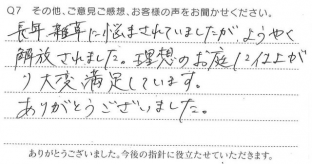 Q7 その他、ご意見ご感想、お客様の声をお聞かせください。
長年雑草に悩まされていましたが、ようやく
解放されました。理想のお庭に仕上が
り大変満足しています。
ありがとうございました。
ありがとうございました。今後の指針に役立たせていただきます。